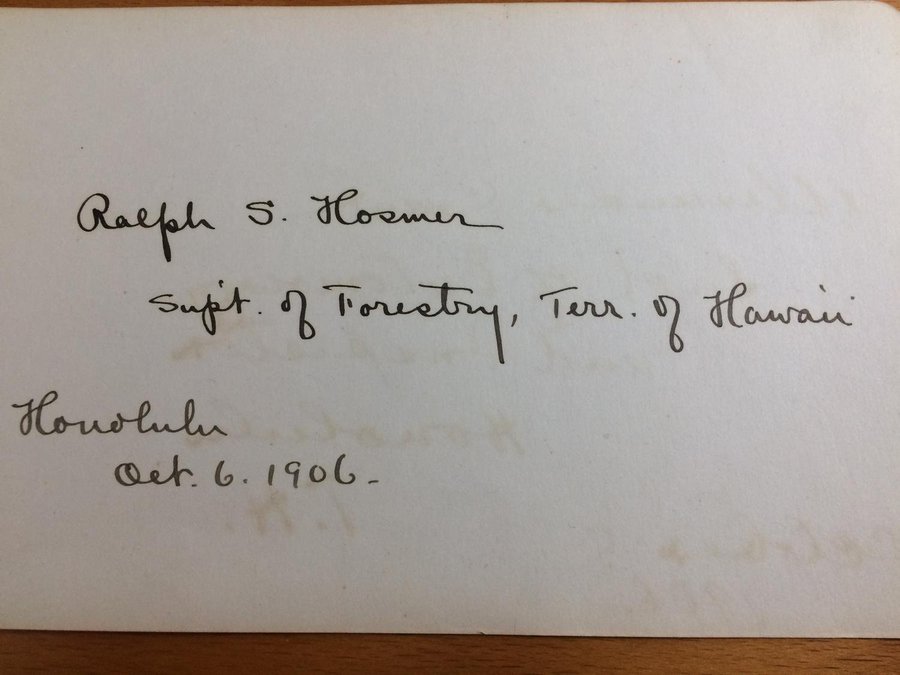 Ralph S. Hosmer
Sup't. of Forestry, Terr. of Hawaii
Honolulu
Oct. 6. 1906.